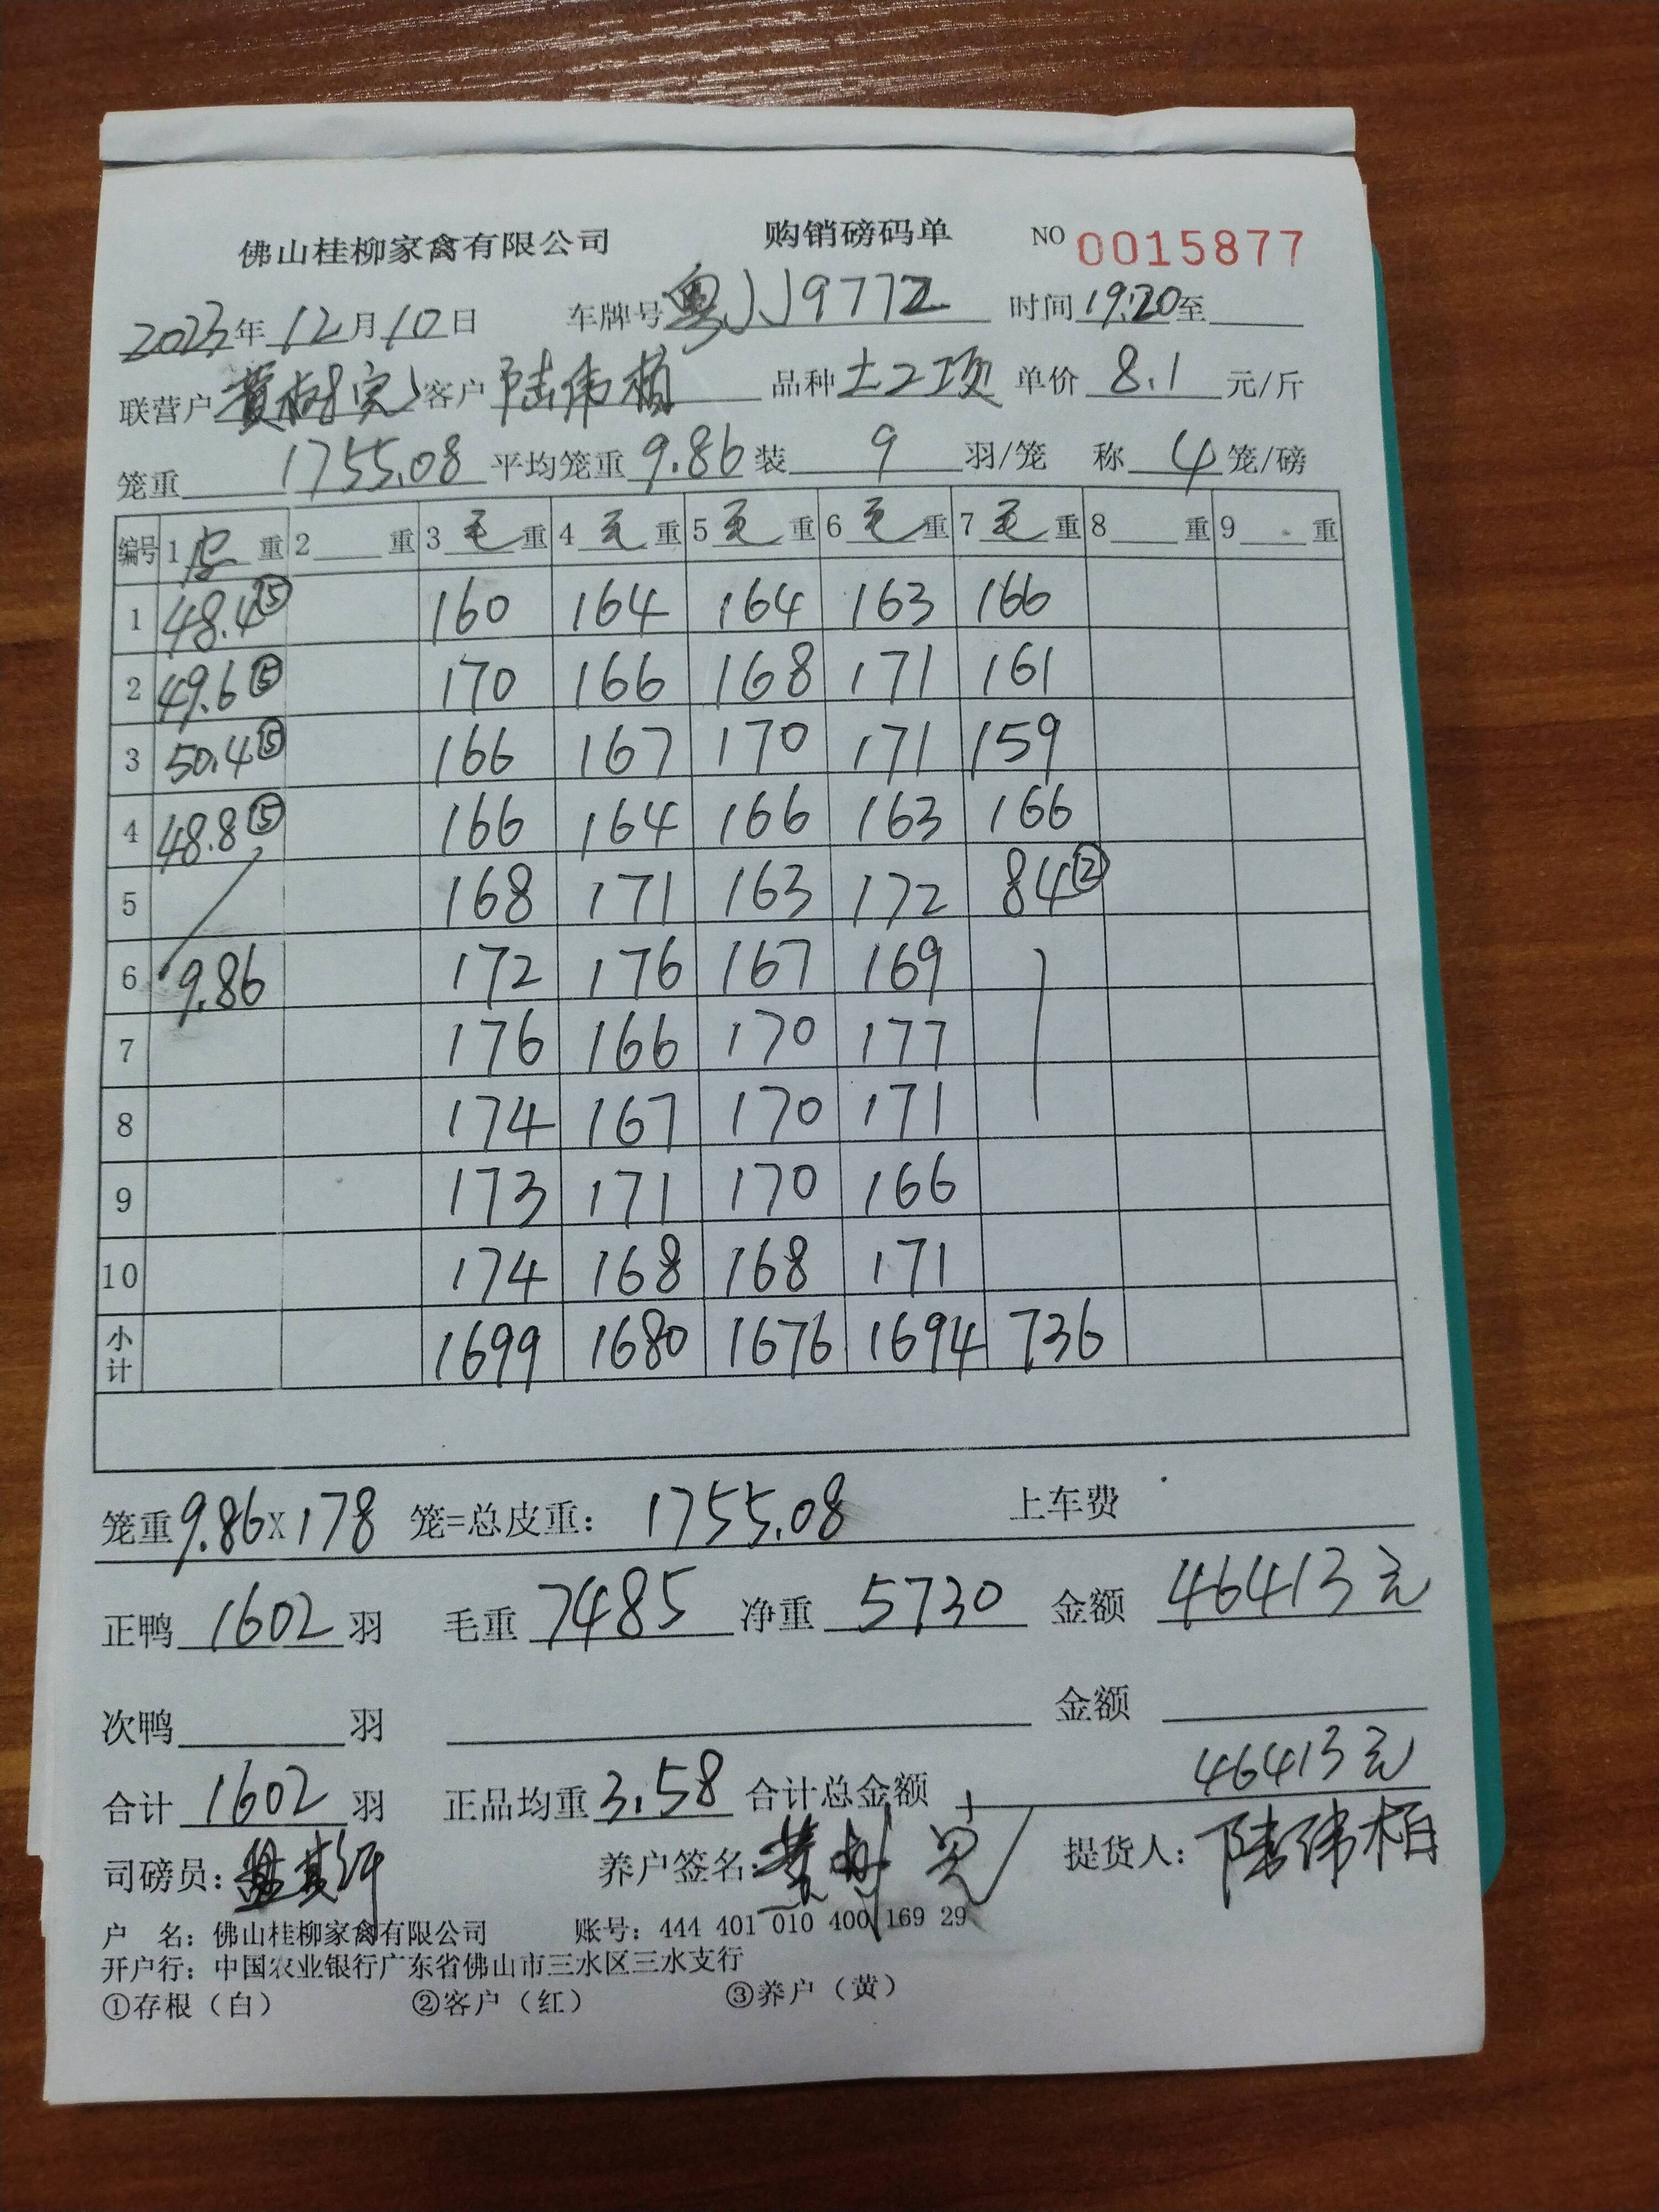 佛山桂柳家禽有限公司 购销磅码单 NO 0015877
2023年12月10日 车牌号粤JJ9772 时间19:20至
联营户黄树宽 客户陆伟柏 品种土2项 单价8.1元/斤
笼重1755.08 平均笼重9.86装9羽/笼 称4笼/磅
编号 1皮重 2重 3毛重 4毛重 5毛重 6毛重 7毛重 8重 9重
1 48.4⑤ 160 164 164 163 166
2 49.6⑤ 170 166 168 171 161
3 50.4⑤ 166 167 170 171 159
4 48.8⑤ 166 164 166 163 166
5 168 171 163 172 84②
6 9.86 172 176 167 169
7 176 166 170 177
8 174 167 170 171
9 173 171 170 166
10 174 168 168 171
小计 1699 1680 1676 1694 736
笼重9.86×178笼=总皮重：1755.08 上车费
正鸭1602羽 毛重7485 净重5730 金额46413元
次鸭 羽 金额
合计1602羽 正品均重3.58 合计总金额46413元
司磅员： 养户签名： 提货人：陆伟柏
户 名：佛山桂柳家禽有限公司 账号：444 401 010 400 169 29
开户行：中国农业银行广东省佛山市三水区三水支行
①存根（白） ②客户（红） ③养户（黄）